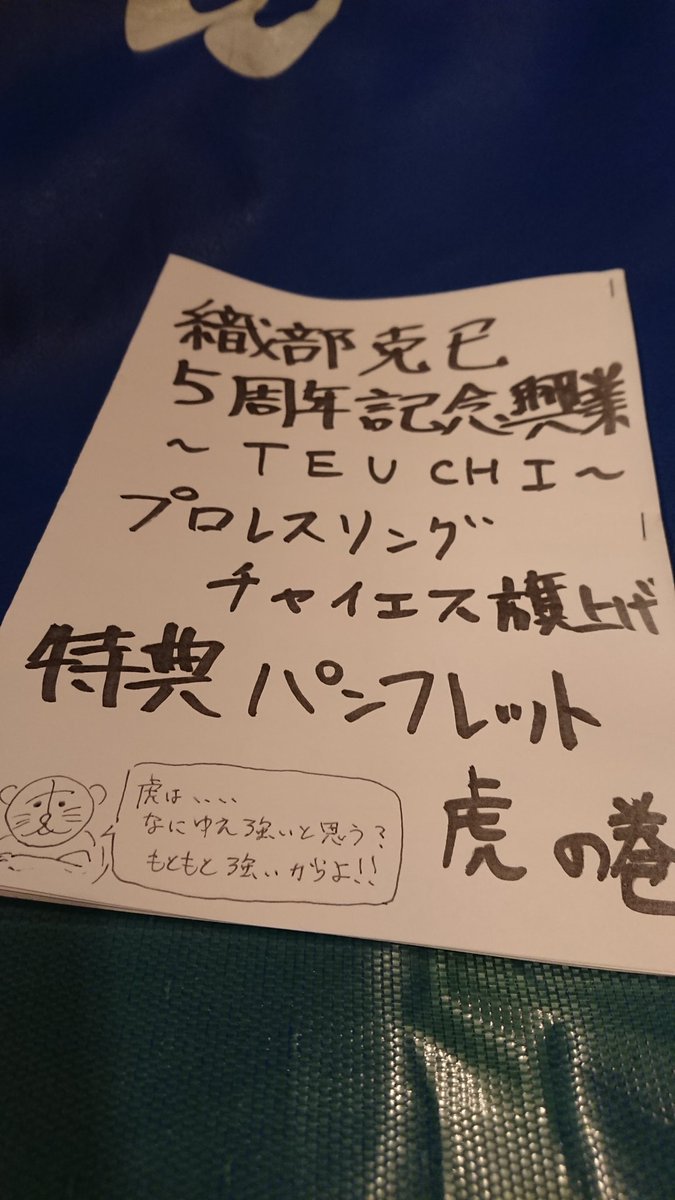 織部克已
5周年記念興業
～TEUCHI～
プロレスリング
チャイエス旗上げ
特典パンフレット
虎の巻
虎は、、、、
なにゆえ強いと思う?
もともと強いからよ!!